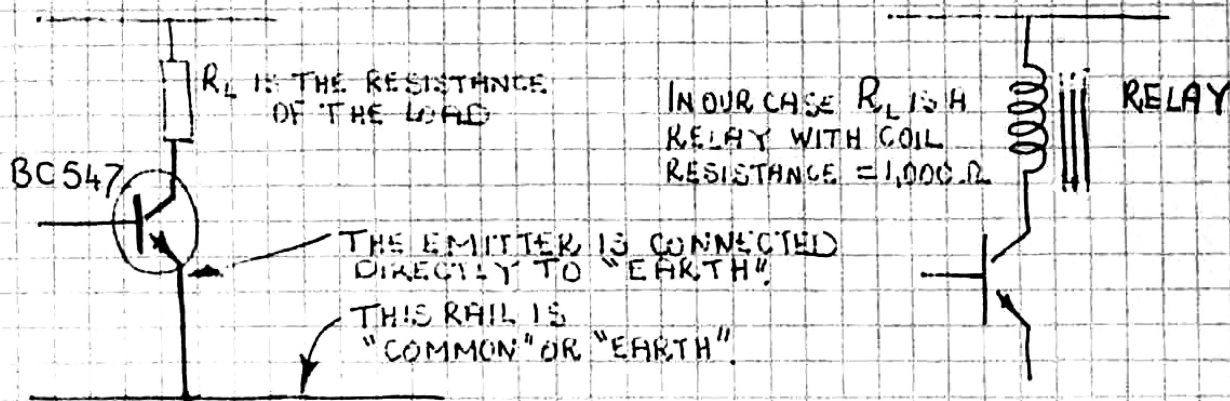 R_L IS THE RESISTANCE
OF THE LOAD
BC547
THE EMITTER IS CONNECTED
DIRECTLY TO "EARTH".
THIS RAIL IS
"COMMON" OR "EARTH".
IN OUR CASE R_L IS A
RELAY WITH COIL
RESISTANCE = 1,000 Ω
RELAY